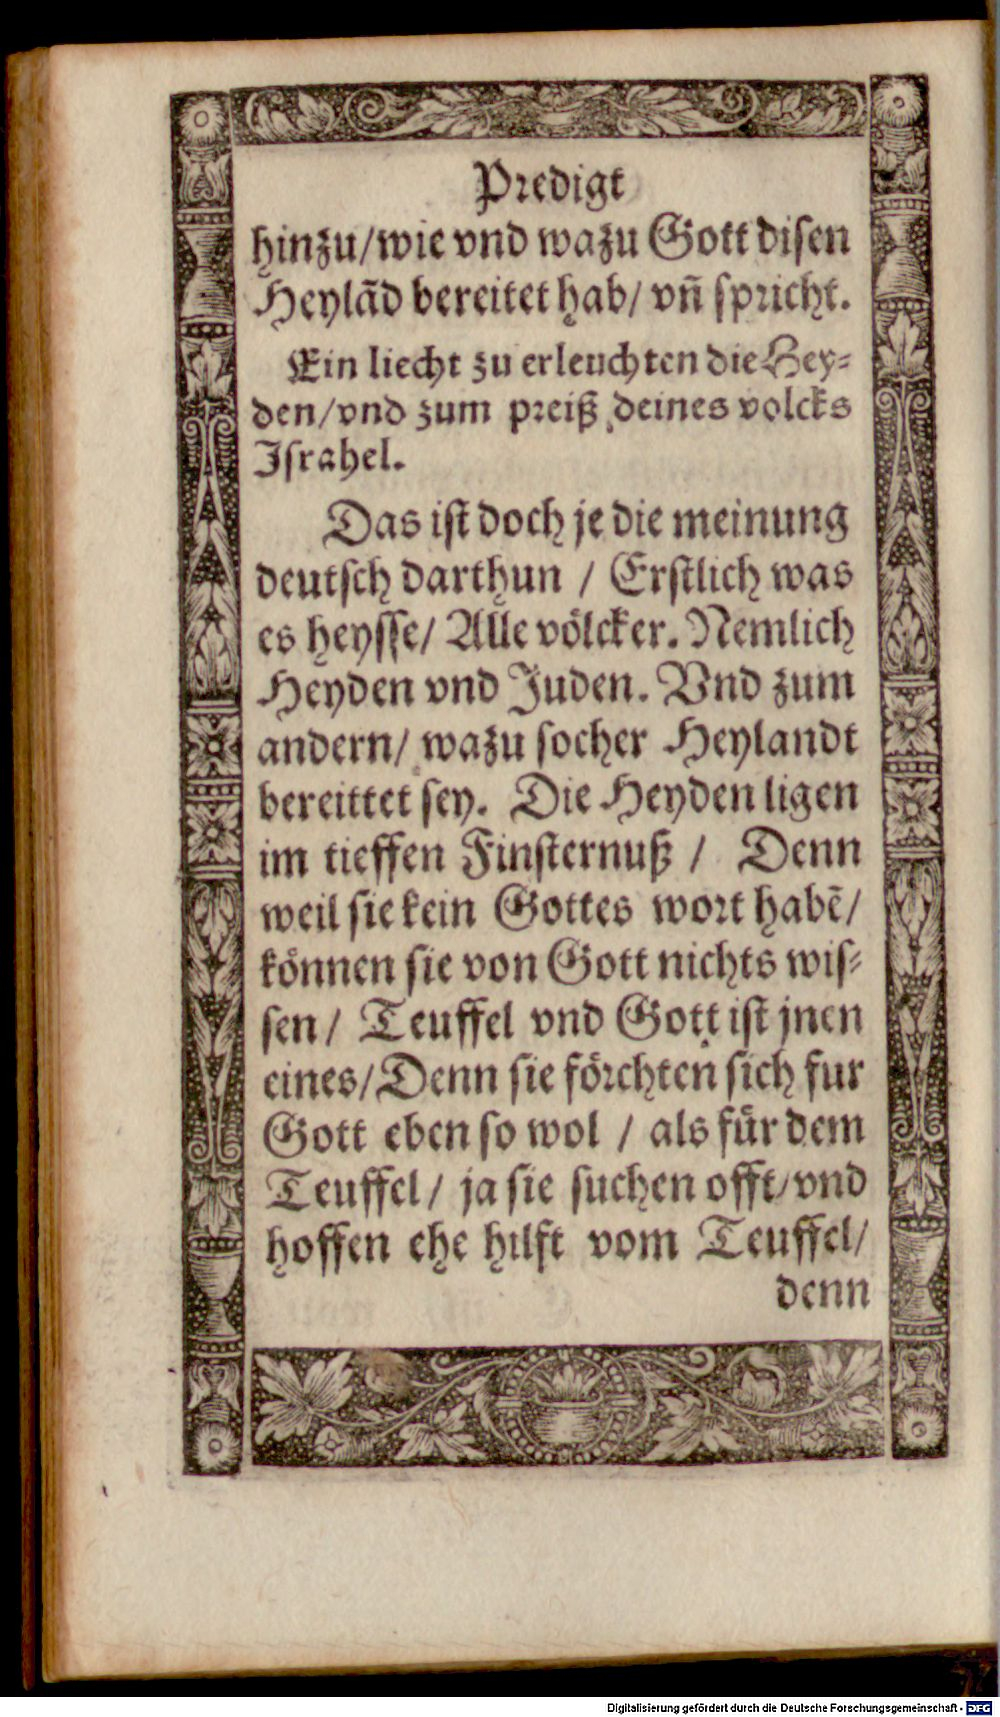 Predigt
hinzu/wie vnd wazu Gott disen
Heylãd bereitet hab/ vñ spricht.
Ein liecht zu erleuchten die Hey-
den/vnd zum preiß deines volcks
Israhel.
Das ist doch je die meinung
deutsch darthun / Erstlich was
es heysse/ Alle völcker. Nemlich
Heyden vnd Juden. Vnd zum
andern/ wazu socher Heylandt
bereittet sey. Die Heyden ligen
im tieffen Finsternuß / Denn
weil sie kein Gottes wort habẽ/
können sie von Gott nichts wis-
sen/ Teuffel vnd Gott ist jnen
eines/Denn sie förchten sich fur
Gott eben so wol / als für dem
Teuffel/ ja sie suchen offt/vnd
hoffen ehe hilft vom Teuffel/
denn
Digitalisierung gefördert durch die Deutsche Forschungsgemeinschaft - DFG